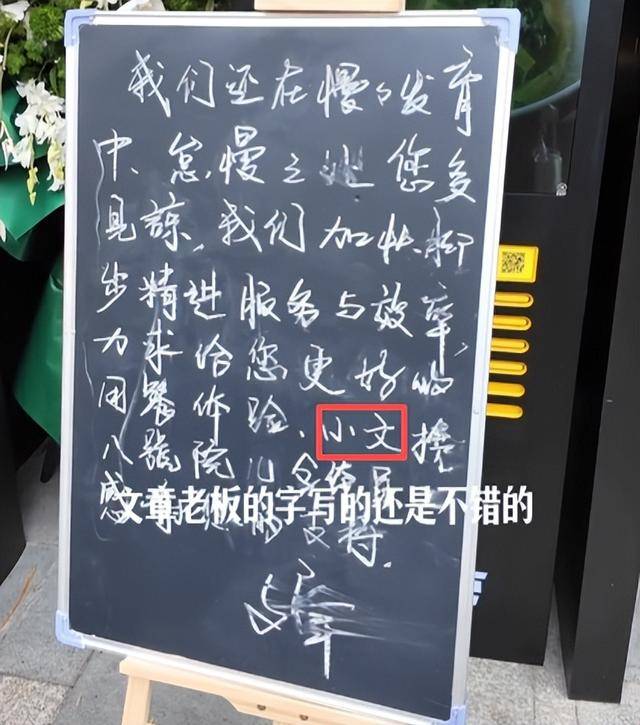 我们还在慢々发育
中、怠慢之处您多
见谅,我们加快脚
步精进服务与效率,
力求给您更好的
用餐体验、小文携
八號院儿全体员
感 的支持.
文章老板的字写的还是不错的